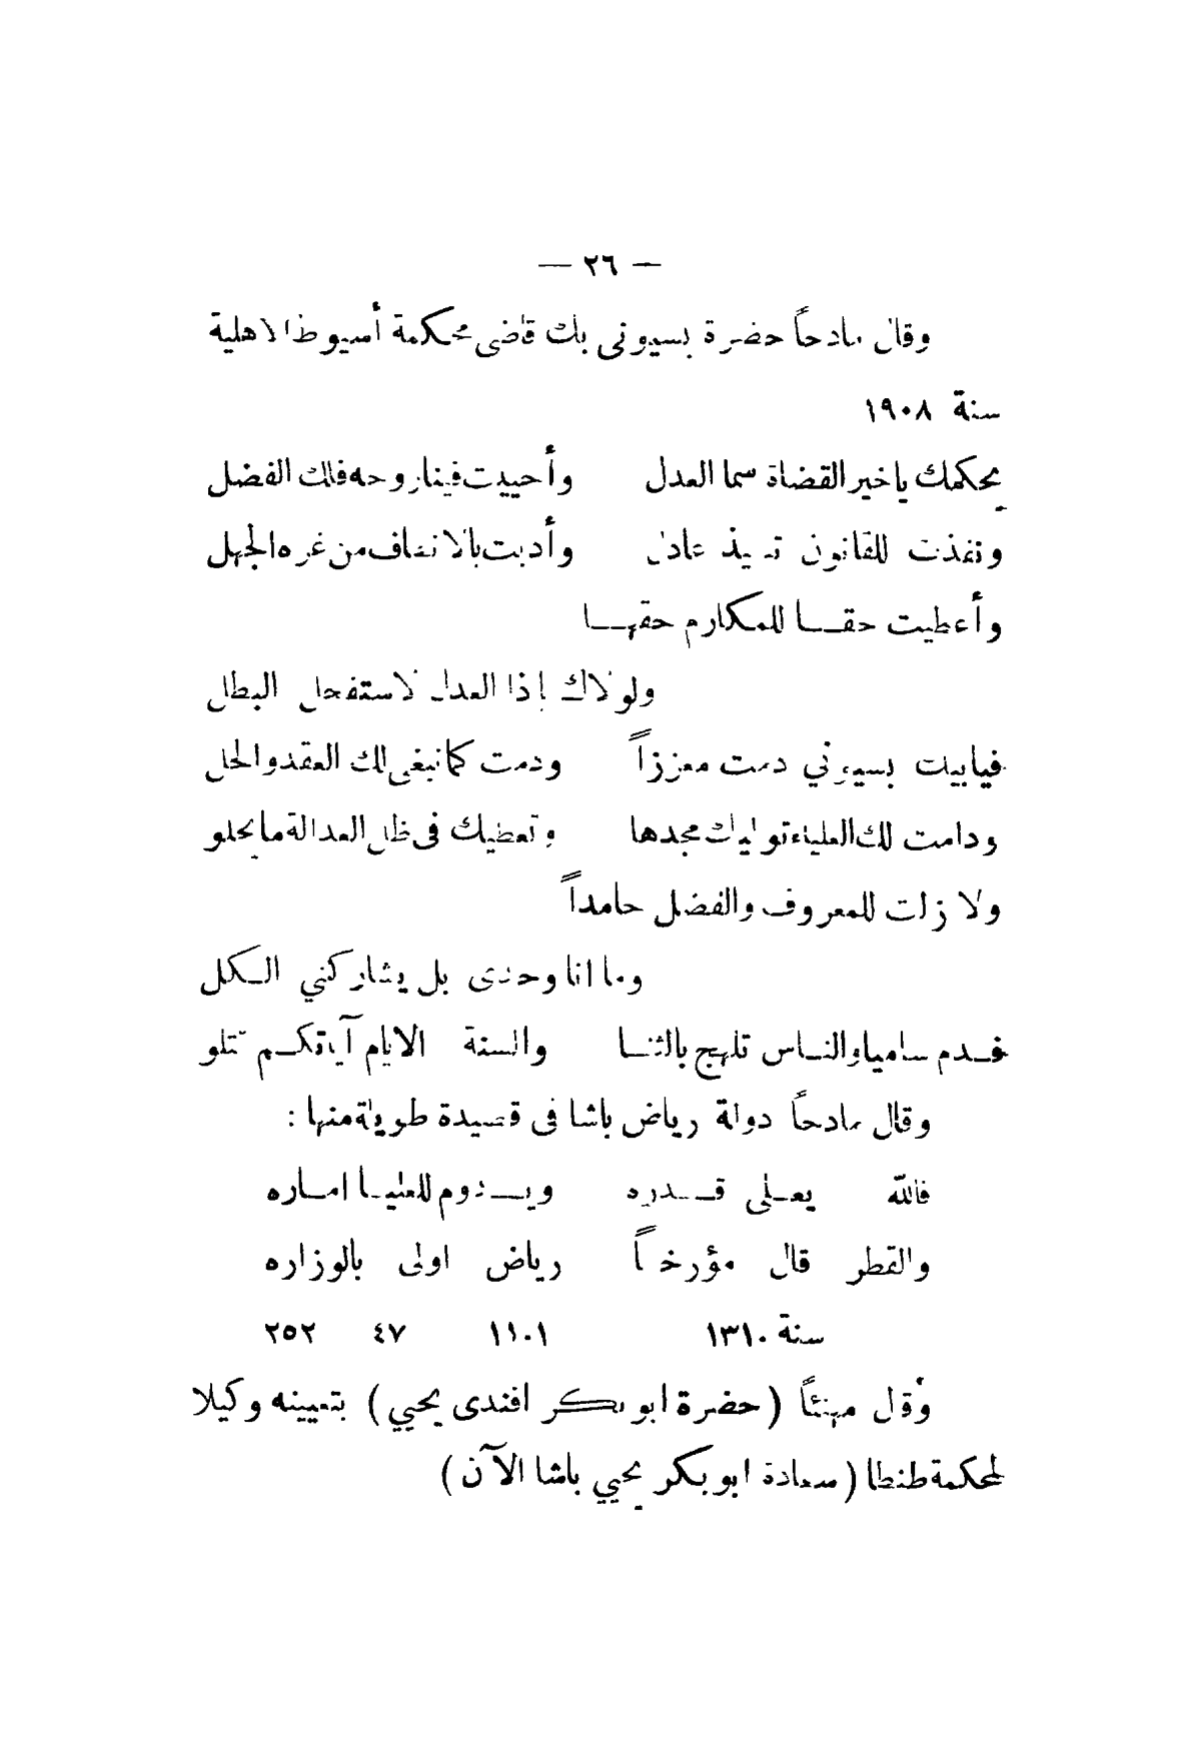 — ٢٦ —
وقال مادحاً حضرة بسيونى بك قاضى محكمة أسيوط الاهلية
سنة ١٩٠٨
بحكمك يا خير القضاة سما العدل وأحييت فينا روحه فلك الفضل
ونفذت للقانون تنفيذ عادل وأدبت بالانصاف من غره الجهل
وأعطيت حقـــا للمكارم حقهـــا
ولولاك إذا العدل لاستفحل البطل
فيابيك بسيوني دمت معززاً ودمت كما نبغى لك العقد والحل
ودامت لك العلياء توليك مجدها وتعطيك فى ظل العدالة ما يحلو
ولا زلت للمعروف والفضل حامداً
وما انا وحدى بل يشاركني الكل
فـدم ساميا والنـاس تلهج بالثنـا والسنة الايام آياتكـم تتلو
وقال مادحاً دولة رياض باشا فى قصيدة طويلة منها :
فالله يعـلى قـدره ويـدوم للعليـا امـاره
والقطر قال مؤرخـاً رياض اولى بالوزاره
سنة ١٣١٠ ١١٠١ ٤٧ ٢٥٢
وقال مهنئاً (حضرة ابو بكر افندى يحيي) بتعيينه وكيلا
لمحكمة طنطا (سعادة ابو بكر يحيي باشا الآن)